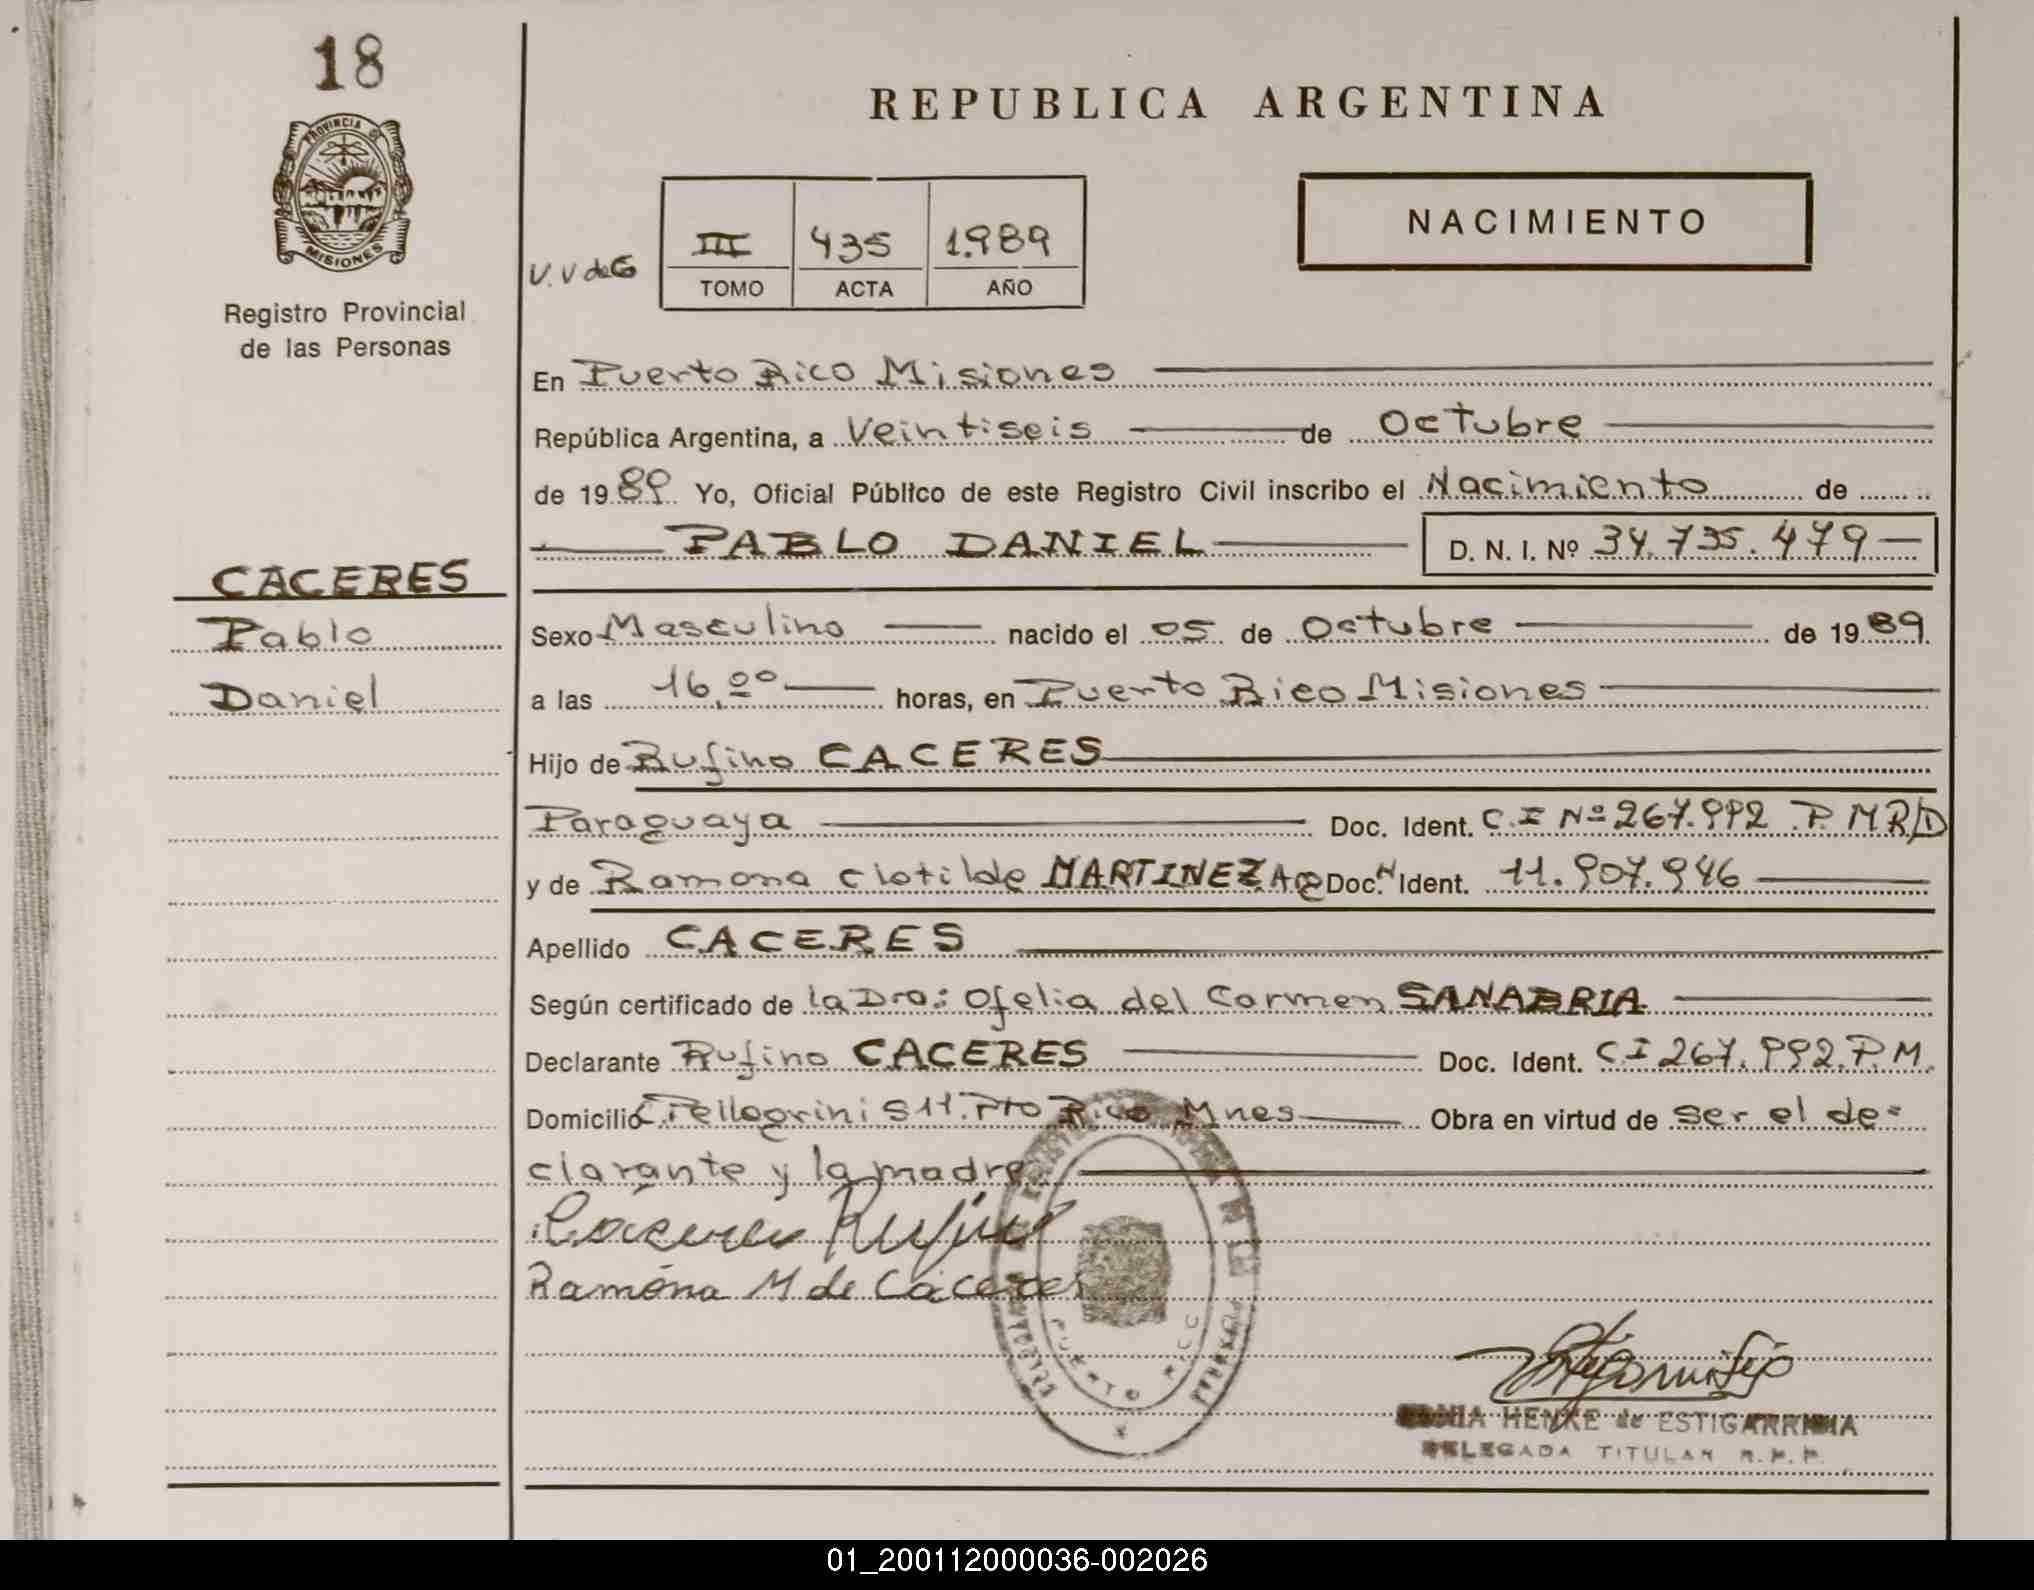 18
REPUBLICA ARGENTINA
PROVINCIA DE
MISIONES
Registro Provincial
de las Personas
NACIMIENTO
V.V de G
III 435 1.989
TOMO ACTA AÑO
En Puerto Rico Misiones
República Argentina, a Veintiseis de Octubre
de 1989 Yo, Oficial Público de este Registro Civil inscribo el Nacimiento de
PABLO DANIEL D. N. I. Nº 34.735.479
CACERES
Pablo
Daniel
Sexo Masculino nacido el 05 de Octubre de 1989
a las 16,00 horas, en Puerto Rico Misiones
Hijo de Rufino CACERES
Paraguaya Doc. Ident. C.I Nº 267.992 P.M R/D
y de Ramona Clotilde MARTINEZ Doc. Ident. 11.907.946
Apellido CACERES
Según certificado de la Dra: Ofelia del Carmen SANABRIA
Declarante Rufino CACERES Doc. Ident. C I 267.992.P.M.
Domicilio C.Pellegrini S11. Pto Rico Mnes Obra en virtud de ser el de=
clarante y la madre
Cáceres Rufino
Ramóna M de Cáceres
PUERTO RICO
HENKE de ESTIGARRIBIA
DELEGADA TITULAR R.P.P.
01_200112000036-002026